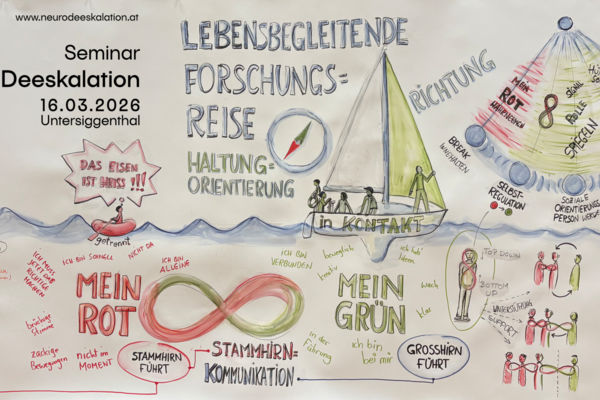 www.neurodeeskalation.at
Seminar
Deeskalation
16.03.2026
Untersiggenthal
LEBENSBEGLEITENDE
FORSCHUNGS=
REISE
HALTUNG=
ORIENTIERUNG
RICHTUNG
DAS EISEN
IST HEISS !!!
getrennt
in KONTAKT
MEIN
ROT
SIGNAL
ROLLE
SPIEGELN
BREAK
INNEHALTEN
SELBST-
REGULATION
SOZIALE
ORIENTIERUNGS
PERSON WERDE
ICH MUSS
JETZT DAS
RICHTIGE
MACHEN
ICH BIN SCHNELL
NICHT DA
ICH BIN
ALLEINE
MEIN
ROT
brüchige
Stimme
zackige
Bewegungen
nicht im
MOMENT
STAMMHIRN
FÜHRT
STAMMHIRN=
KOMMUNIKATION
ICH BIN
VERBUNDEN
beweglich
ich hab'
Ideen
kreativ
MEIN
GRÜN
wach
klar
in der
Führung
ich bin
bei mir
GROSSHIRN
FÜHRT
TOP DOWN
BOTTOM
UP
UNTERSTÜTZUNG
SUPPORT